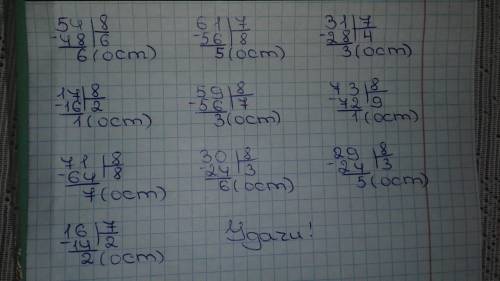 54|8 61|7 31|7
-48|6 -56|8 -28|4
6(ост) 5(ост) 3(ост)
17|8 59|8 73|8
-16|2 -56|7 -72|9
1(ост) 3(ост) 1(ост)
71|8 30|8 29|8
-64|8 -24|3 -24|3
7(ост) 6(ост) 5(ост)
16|7
-14|2 Удачи!
2(ост)